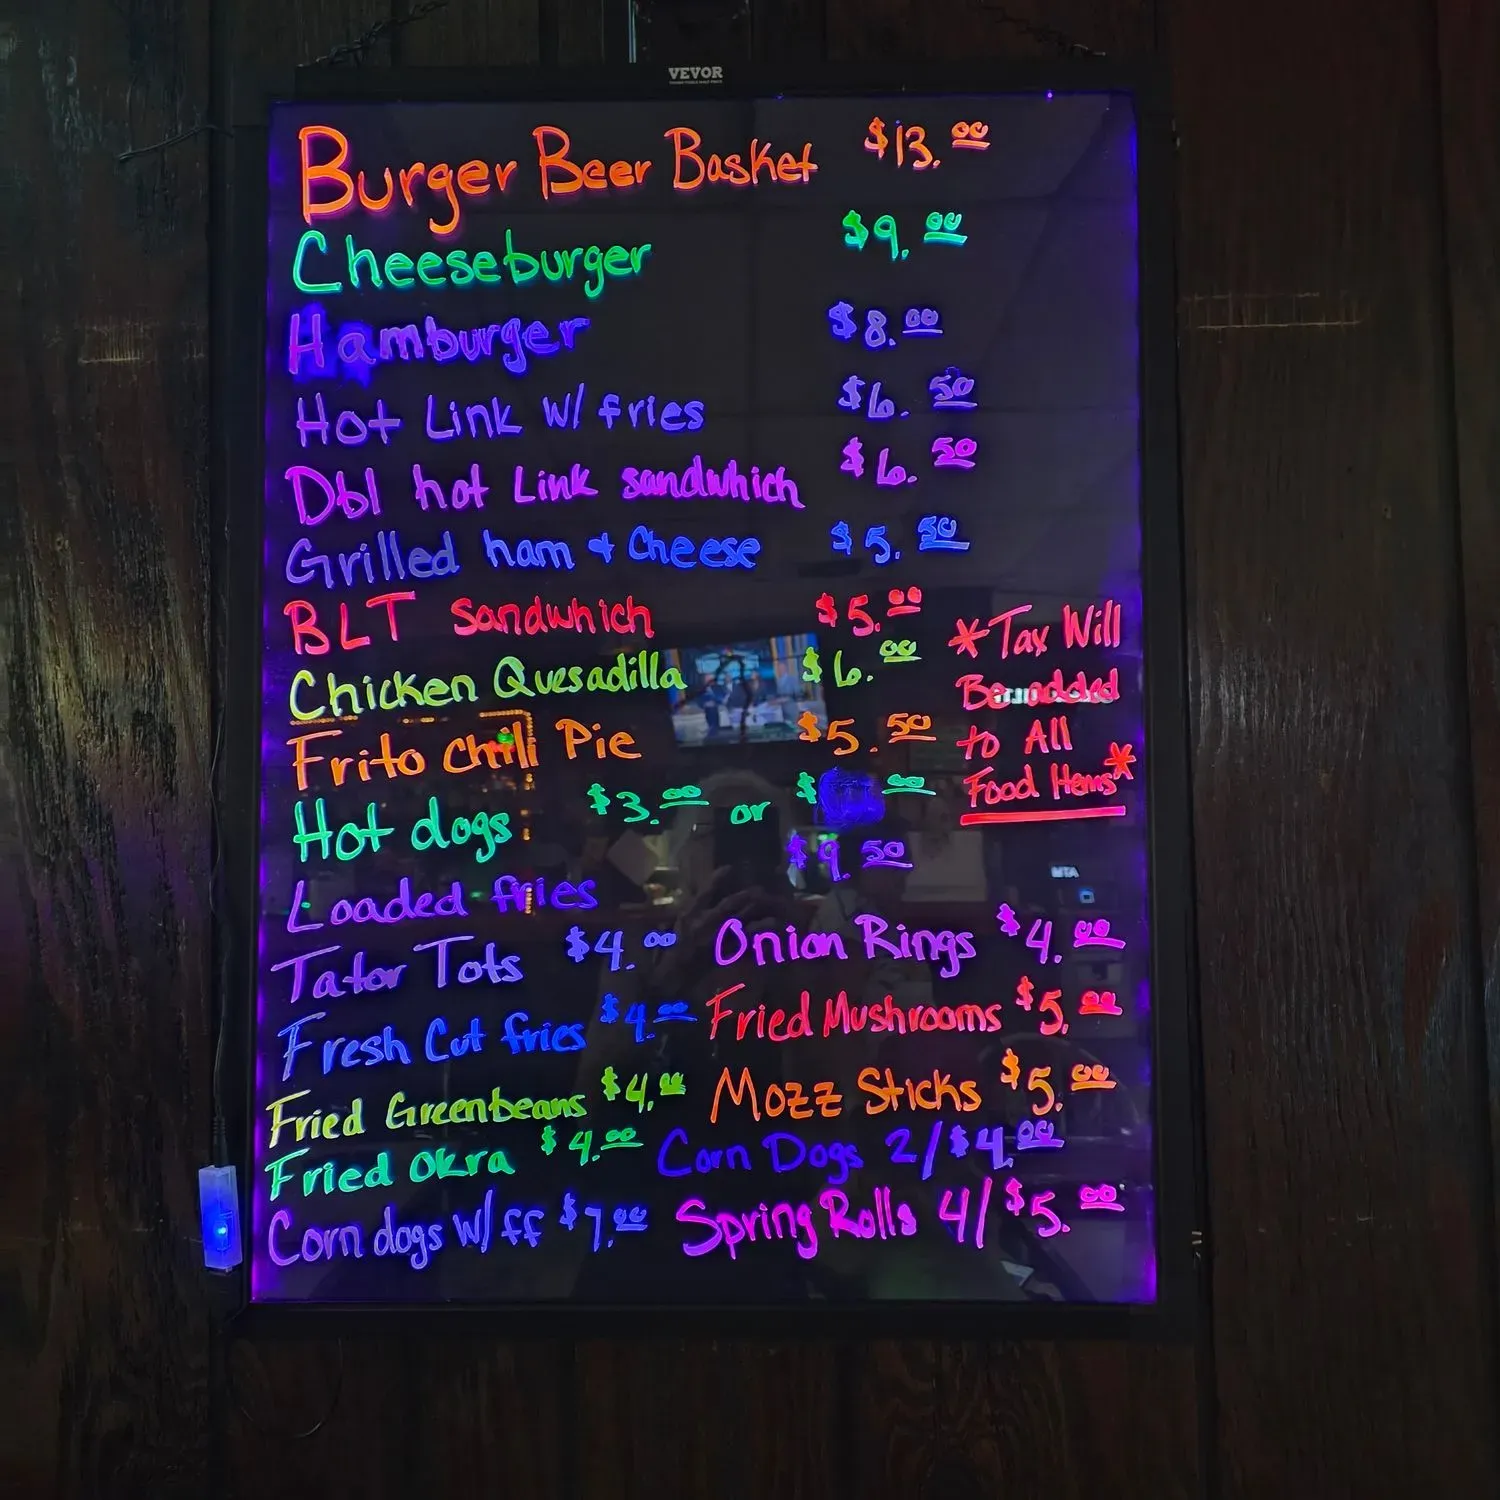 VEVOR
Burger Beer Basket $13.00
Cheeseburger $9.00
Hamburger $8.00
Hot Link w/ fries $6.50
Dbl hot Link sandwhich $6.50
Grilled ham & Cheese $5.50
BLT sandwhich $5.00
Chicken Quesadilla $6.00
Frito Chili Pie $5.50
Hot dogs $3.00 or $ .00
Loaded fries $9.50
*Tax Will
Be added
to All
Food Items*
Tator Tots $4.00 Onion Rings $4.00
Fresh Cut fries $4.00 Fried Mushrooms $5.00
Fried Greenbeans $4.00 Mozz Sticks $5.00
Fried Okra $4.00 Corn Dogs 2/$4.00
Corn dogs w/ff $7.00 Spring Rolls 4/$5.00